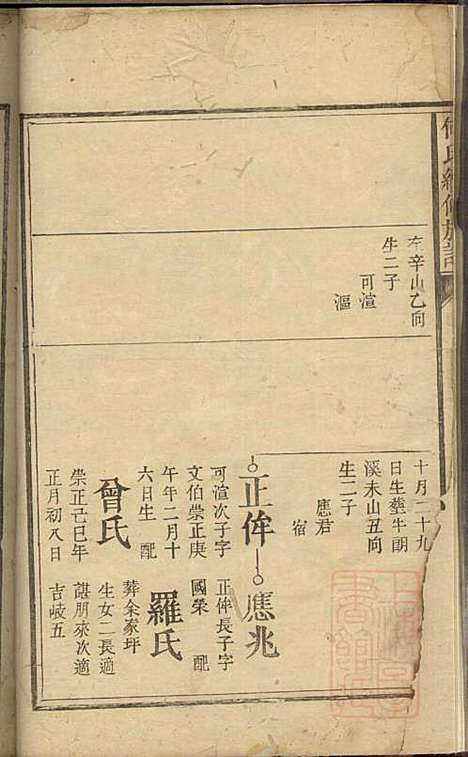 氏續修族譜
辛山乙向
生二子
可渲
漚
十月二十九
日生葬牛嗣
溪未山丑向
生二子
應君
宿
正侔
可渲次子字
文伯崇正庚
午年二月十
六日生 配
曾氏
崇正己巳年
正月初八日
應兆
正侔長子字
國榮 配
羅氏
葬余家坪
生女二長適
諶朋來次適
吉岐五